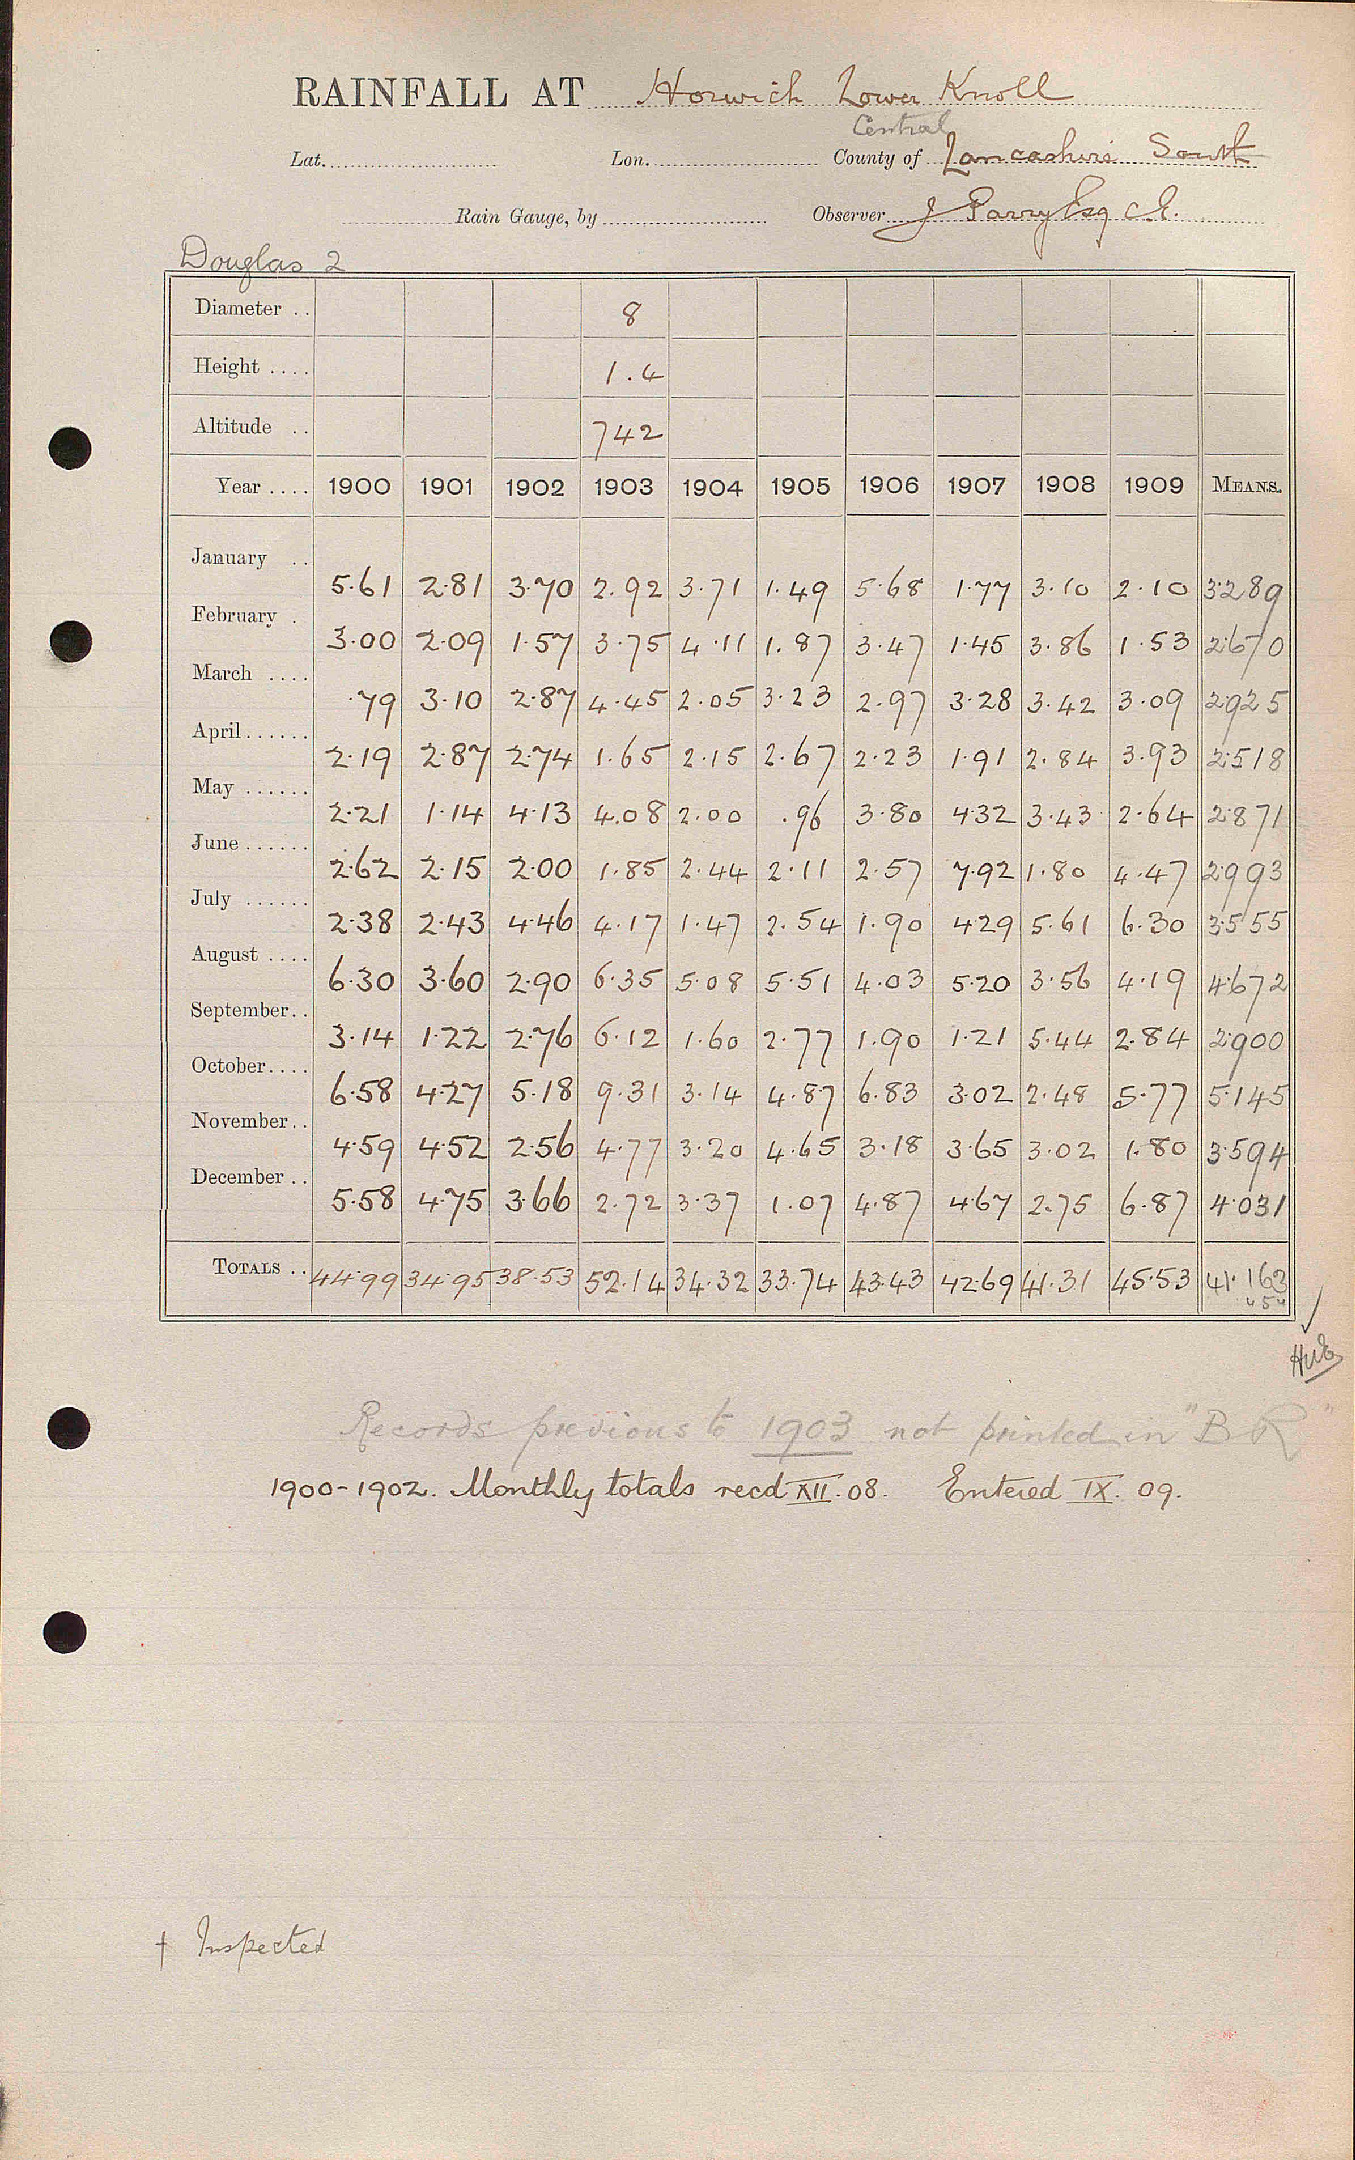 RAINFALL AT Horwich Lower Knoll
Central
Lat. Lon. County of Lancashire South
Rain Gauge, by Observer J Parry Esq C.E.
Douglas 2
Diameter .. 8
Height .... 1.4
Altitude .. 742
Year .... 1900 1901 1902 1903 1904 1905 1906 1907 1908 1909 MEANS.
January .. 5.61 2.81 3.70 2.92 3.71 1.49 5.68 1.77 3.10 2.10 3.289
February . 3.00 2.09 1.57 3.75 4.11 1.87 3.47 1.45 3.86 1.53 2.670
March .... .79 3.10 2.87 4.45 2.05 3.23 2.97 3.28 3.42 3.09 2.925
April...... 2.19 2.87 2.74 1.65 2.15 2.67 2.23 1.91 2.84 3.93 2.518
May ...... 2.21 1.14 4.13 4.08 2.00 .96 3.80 4.32 3.43 2.64 2.871
June...... 2.62 2.15 2.00 1.85 2.44 2.11 2.57 7.92 1.80 4.47 2.993
July ...... 2.38 2.43 4.46 4.17 1.47 2.54 1.90 4.29 5.61 6.30 3.555
August .... 6.30 3.60 2.90 6.35 5.08 5.51 4.03 5.20 3.56 4.19 4.672
September.. 3.14 1.22 2.76 6.12 1.60 2.77 1.90 1.21 5.44 2.84 2.900
October.... 6.58 4.27 5.18 9.31 3.14 4.87 6.83 3.02 2.48 5.77 5.145
November.. 4.59 4.52 2.56 4.77 3.20 4.65 3.18 3.65 3.02 1.80 3.594
December .. 5.58 4.75 3.66 2.72 3.37 1.07 4.87 4.67 2.75 6.87 4.031
TOTALS .. 44.99 34.95 38.53 52.14 34.32 33.74 43.43 42.69 41.31 45.53 41.163
Records previous to 1903 not printed in "B R"
1900-1902. Monthly totals recd XII.08. Entered IX. 09.
† Inspected